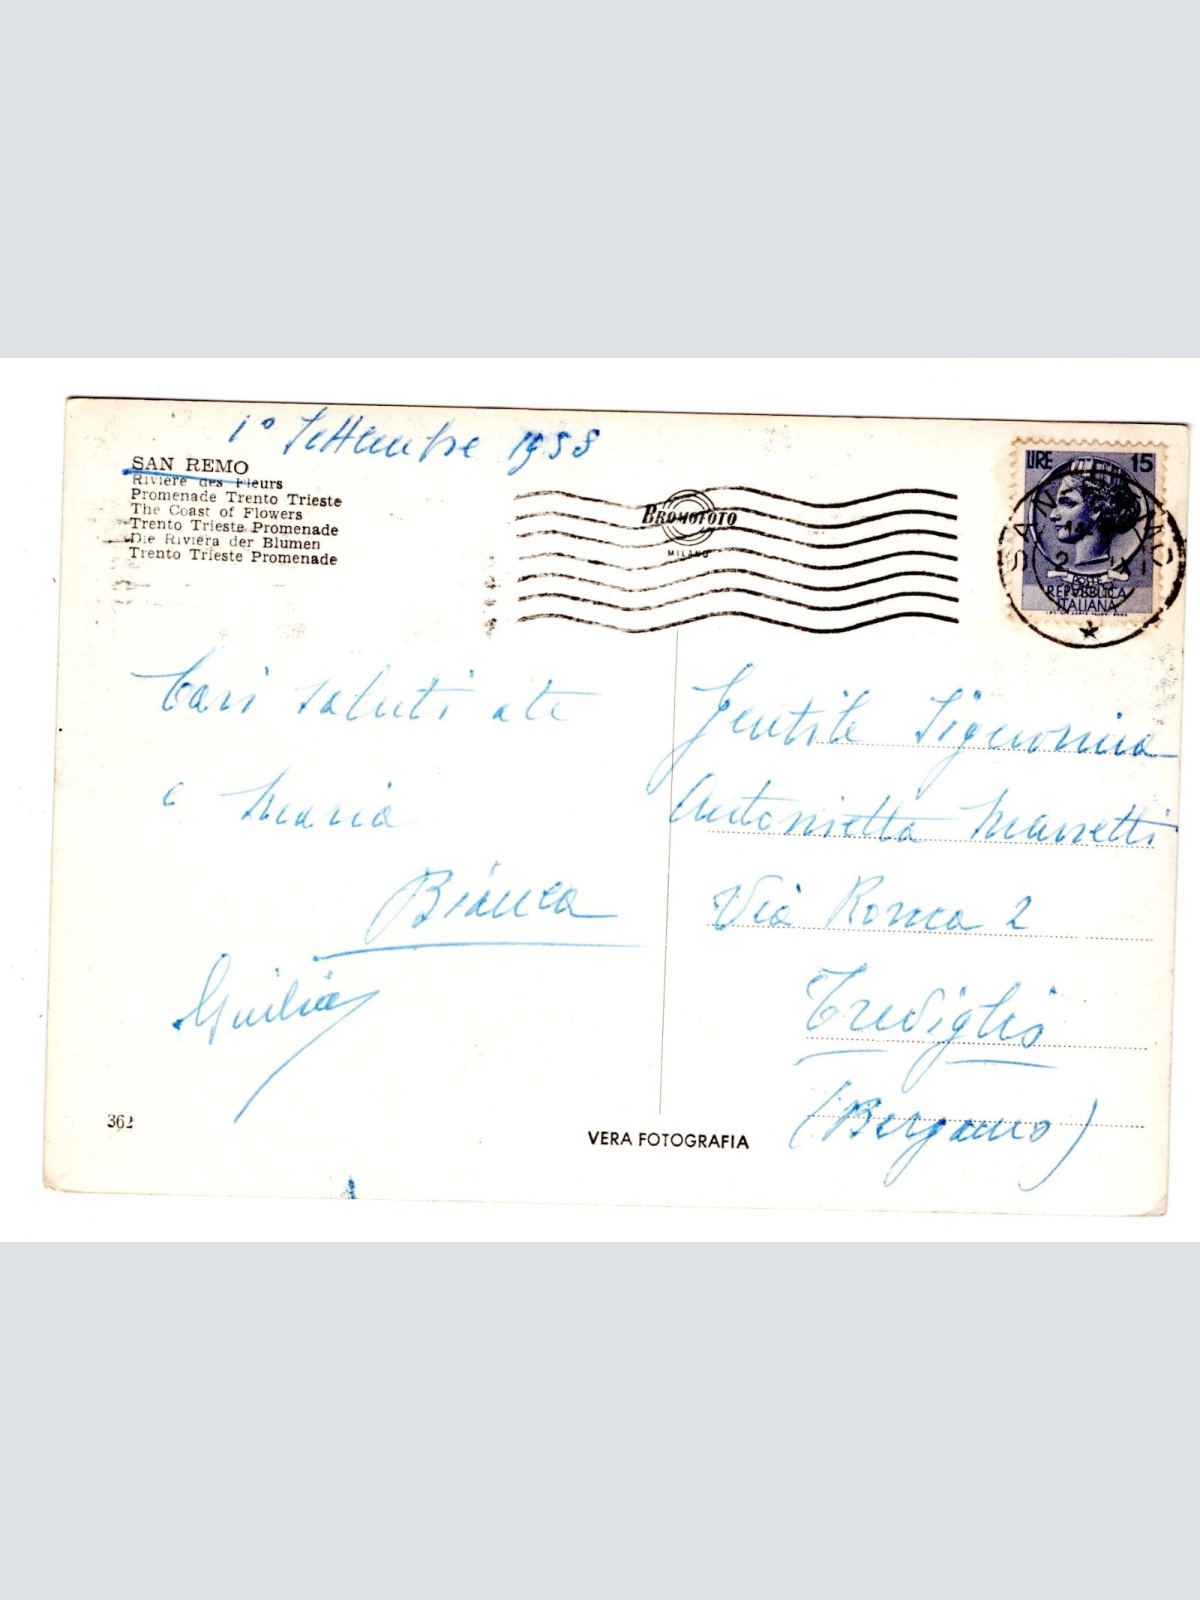 1º Settembre 1958
SAN REMO
Rivière des Fleurs
Promenade Trento Trieste
The Coast of Flowers
Trento Trieste Promenade
Die Riviera der Blumen
Trento Trieste Promenade
BROMOFOTO
MILANO
LIRE 15
SAN REMO
POSTE
REPVBBLICA
ITALIANA
Cari saluti a te
e Maria
Bianca
Giulia
Gentile Signorina
Antonietta
Via Roma 2
Treviglio
(Bergamo)
362
VERA FOTOGRAFIA